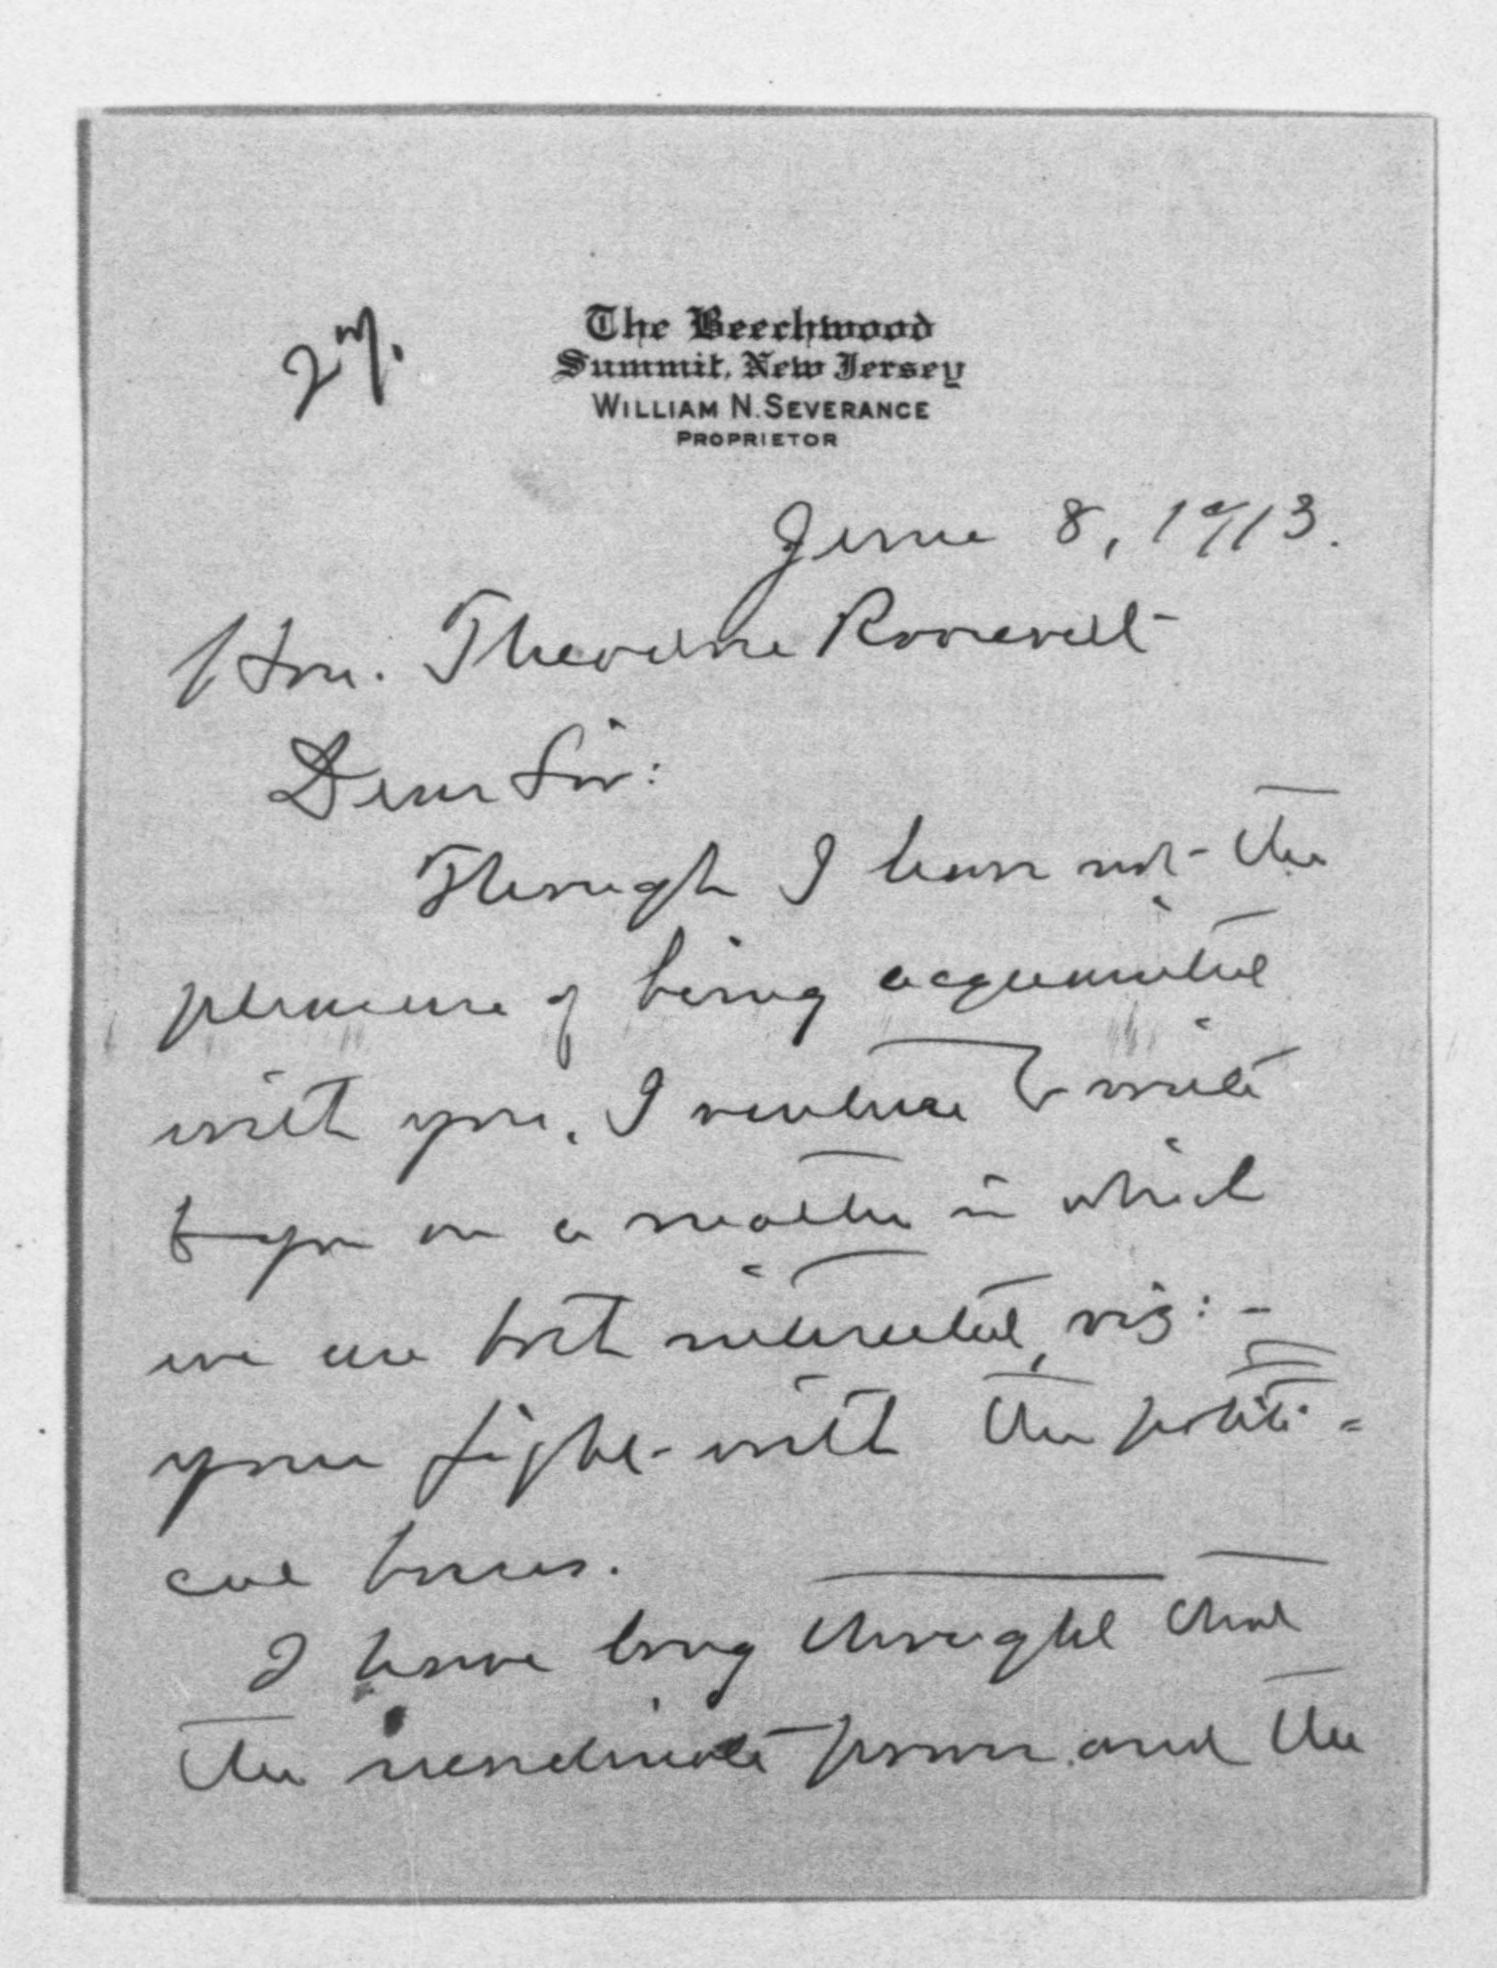 The Beechwood
Summit, New Jersey
WILLIAM N. SEVERANCE
PROPRIETOR
June 8, 1913.
Hon. Theodore Roosevelt
Dear Sir:
Though I have not the
pleasure of being acquainted
with you, I venture to write
to you on a matter in which
we are both interested, viz:-
your fight with the politi-
cal bosses.
I have long thought that
the power and the